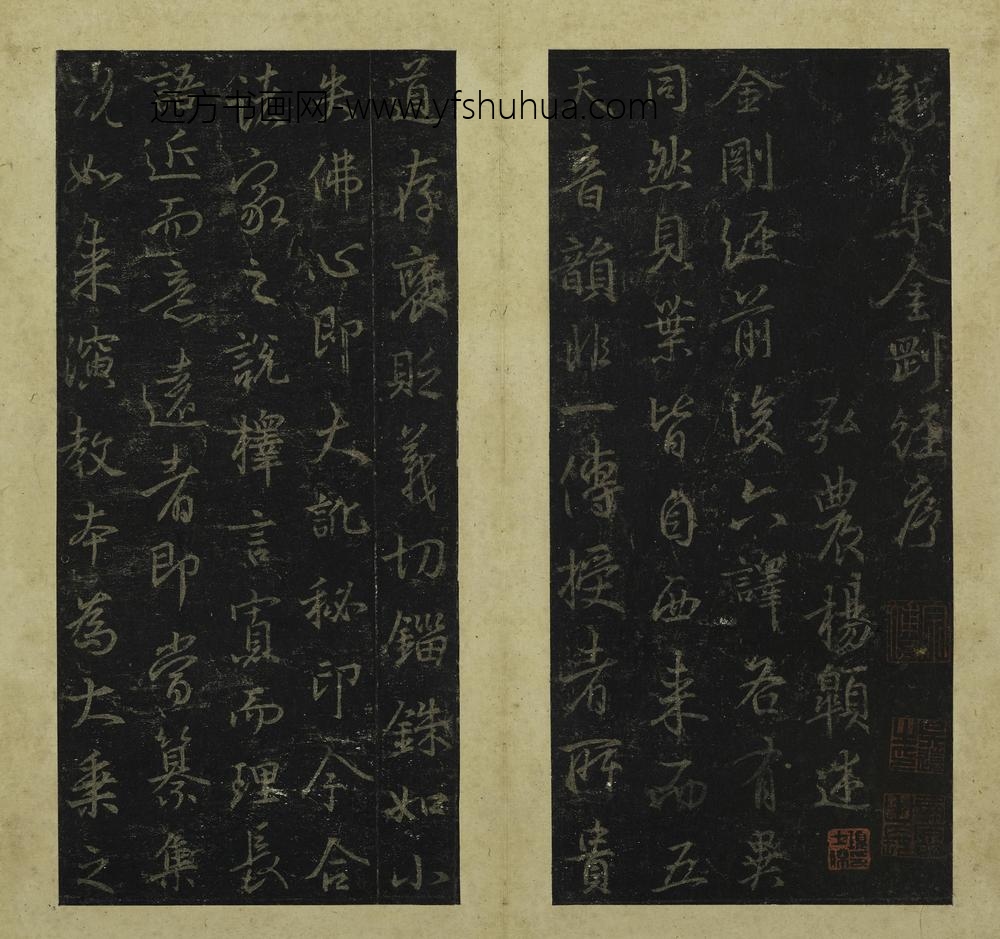 新集金剛經序
弘農楊顗述
金剛經前後六譯各有異
同然貝葉皆自西來而五
天音韻非一傳授者所貴
道存褒貶義切錙銖如小
失佛心即大訛秘印今合
諸家之說擇言寡而理長
語近而意遠者即當纂集
況如來演教本為大乘之
远方书画网-www.yfshuhua.com